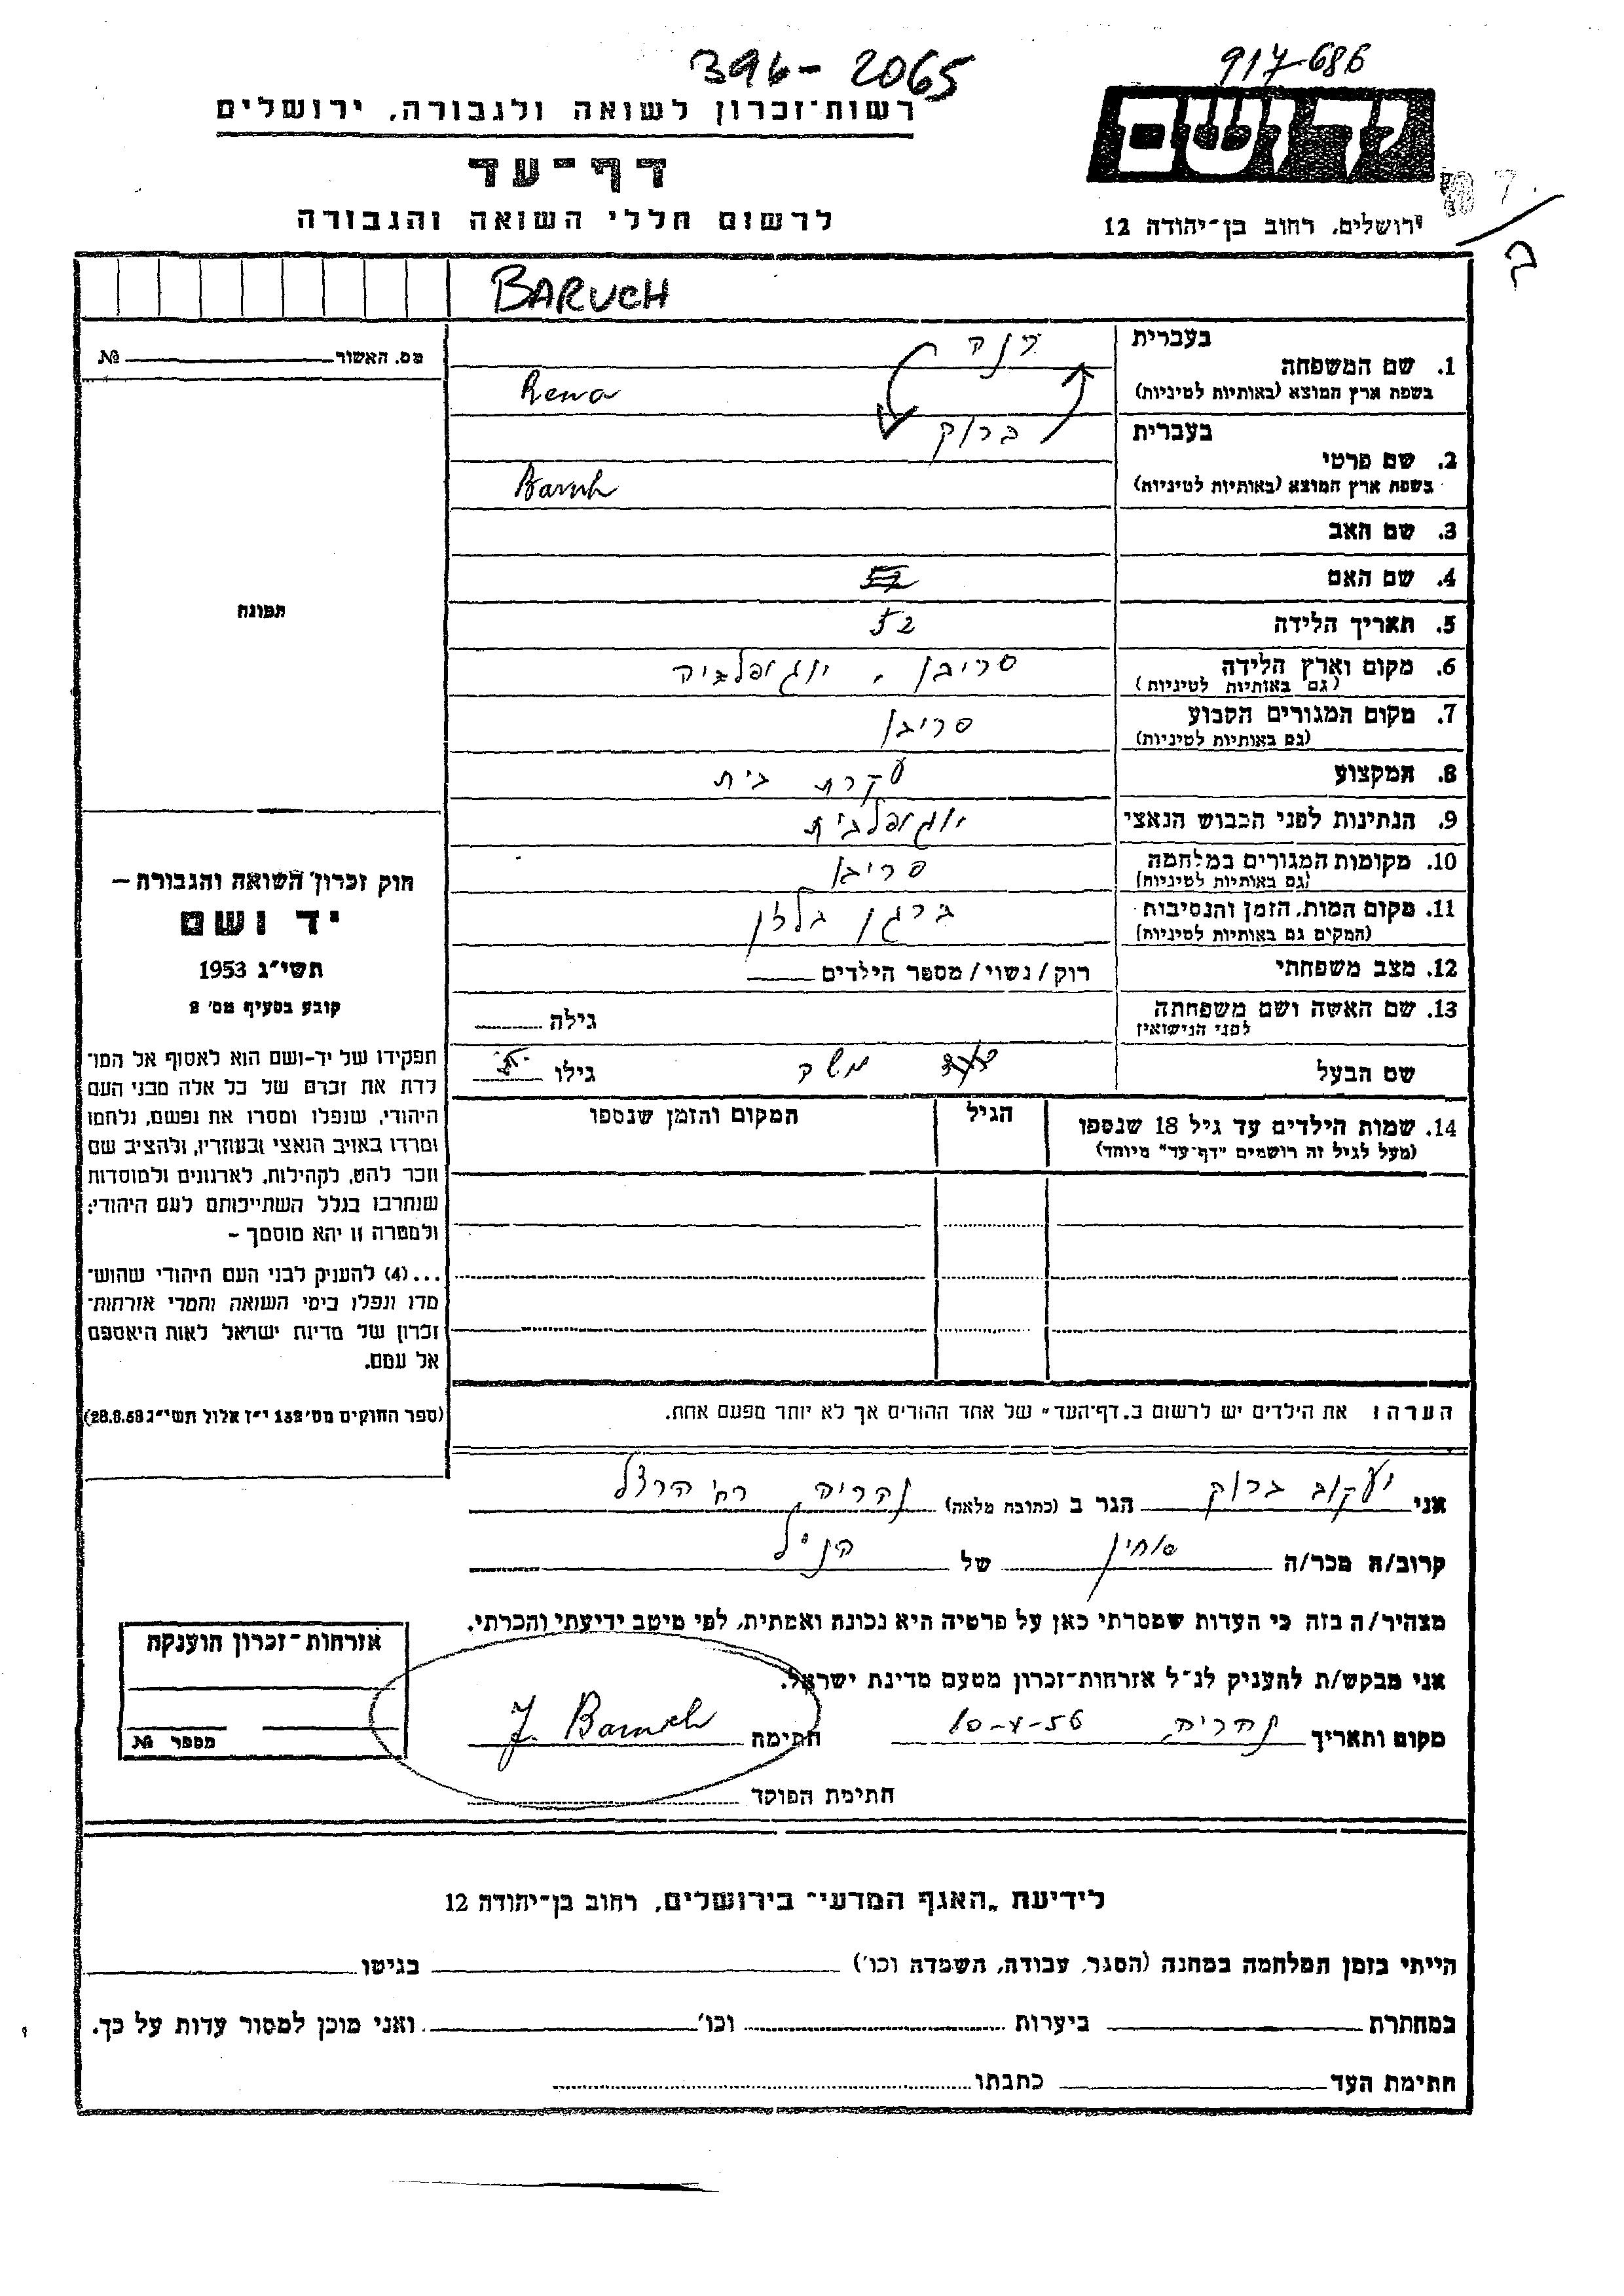 396-2065
917-686
רשות־זכרון לשואה ולגבורה, ירושלים
יד ושם
דף־עד
לרשום חללי השואה והגבורה
ירושלים, רחוב בן־יהודה 12
BARUCH
מס. האשור № 
בעברית
1. שם המשפחה
בשפת ארץ המוצא (באותיות לטיניות) Rena
בעברית ברוך
2. שם פרטי
בשפת ארץ המוצא (באותיות לטיניות) Baruch
3. שם האב
4. שם האם
5. תאריך הלידה 52
6. מקום וארץ הלידה
(גם באותיות לטיניות)
7. מקום המגורים הקבוע
(גם באותיות לטיניות)
8. המקצוע עקרת בית
9. הנתינות לפני הכבוש הנאצי יוגוסלבית
10. מקומות המגורים במלחמה
(גם באותיות לטיניות)
11. מקום המות, הזמן והנסיבות ברגן בלזן
(המקים גם באותיות לטיניות)
12. מצב משפחתי רוק/נשוי/מספר הילדים
13. שם האשה ושם משפחתה גילה
לפני הנישואין
שם הבעל משה גילו
14. שמות הילדים עד גיל 18 שנספו הגיל המקום והזמן שנספו
(מעל לגיל זה רושמים "דף־עד" מיוחד)
תמונה
חוק זכרון השואה והגבורה —
יד ושם
תשי"ג 1953
קובע בסעיף מס' 8
תפקידו של יד-ושם הוא לאסוף אל המו־
לדת את זכרם של כל אלה מבני העם
היהודי, שנפלו ומסרו את נפשם, נלחמו
ומרדו באויב הנאצי ובעוזריו, ולהציב שם
וזכר להם, לקהילות, לארגונים ולמוסדות
שנחרבו בגלל השתייכותם לעם היהודי;
ולמטרה זו יהא מוסמך —
...(4) להעניק לבני העם היהודי שהוש־
מדו ונפלו בימי השואה והמרי אזרחות־
זכרון של מדינת ישראל לאות היאספם
אל עמם.
(ספר החוקים מס' 132 י"ז אלול תשי"ג 28.8.53)
הערה: את הילדים יש לרשום ב,,דף־העד" של אחד ההורים אך לא יותר מפעם אחת.
אני יעקוב ברוך הגר ב (כתובת מלאה) נהריה רח' הרצל
קרוב/ה מכר/ה של הנ"ל
מצהיר/ה בזה כי העדות שמסרתי כאן על פרטיה היא נכונה ואמתית, לפי מיטב ידיעתי והכרתי.
אני מבקש/ת להעניק לנ"ל אזרחות־זכרון מטעם מדינת ישראל.
מקום ותאריך נהריה חתימה J. Baruch
חתימת הפוקד
אזרחות־זכרון הוענקה
מספר №
לידיעת ,,האגף המדעי" בירושלים, רחוב בן־יהודה 12
הייתי בזמן המלחמה במחנה (הסגר, עבודה, השמדה וכו') בגיטו
במחתרת ביערות וכו' ואני מוכן למסור עדות על כך.
חתימת העד כתבתו